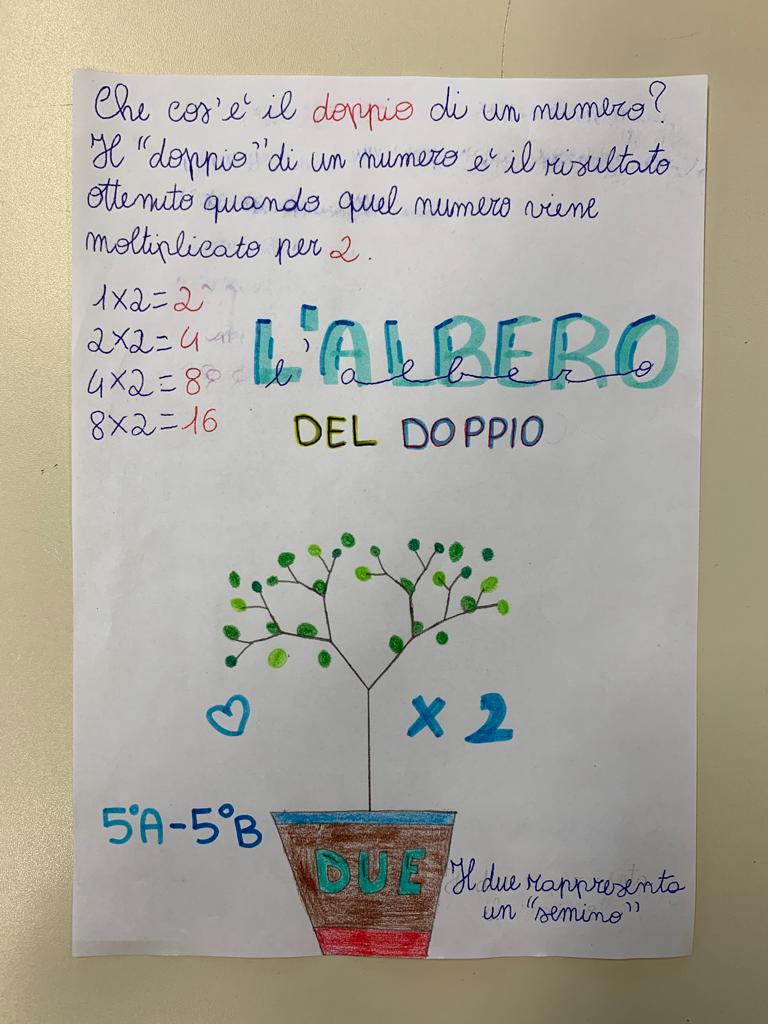 Che cos'è il doppio di un numero?
Il "doppio" di un numero è il risultato
ottenuto quando quel numero viene
moltiplicato per 2.
1x2=2
2x2=4
4x2=8
8x2=16
L'ALBERO
l'albero
DEL DOPPIO
x 2
5°A-5°B
DUE
Il due rappresenta
un "semino"